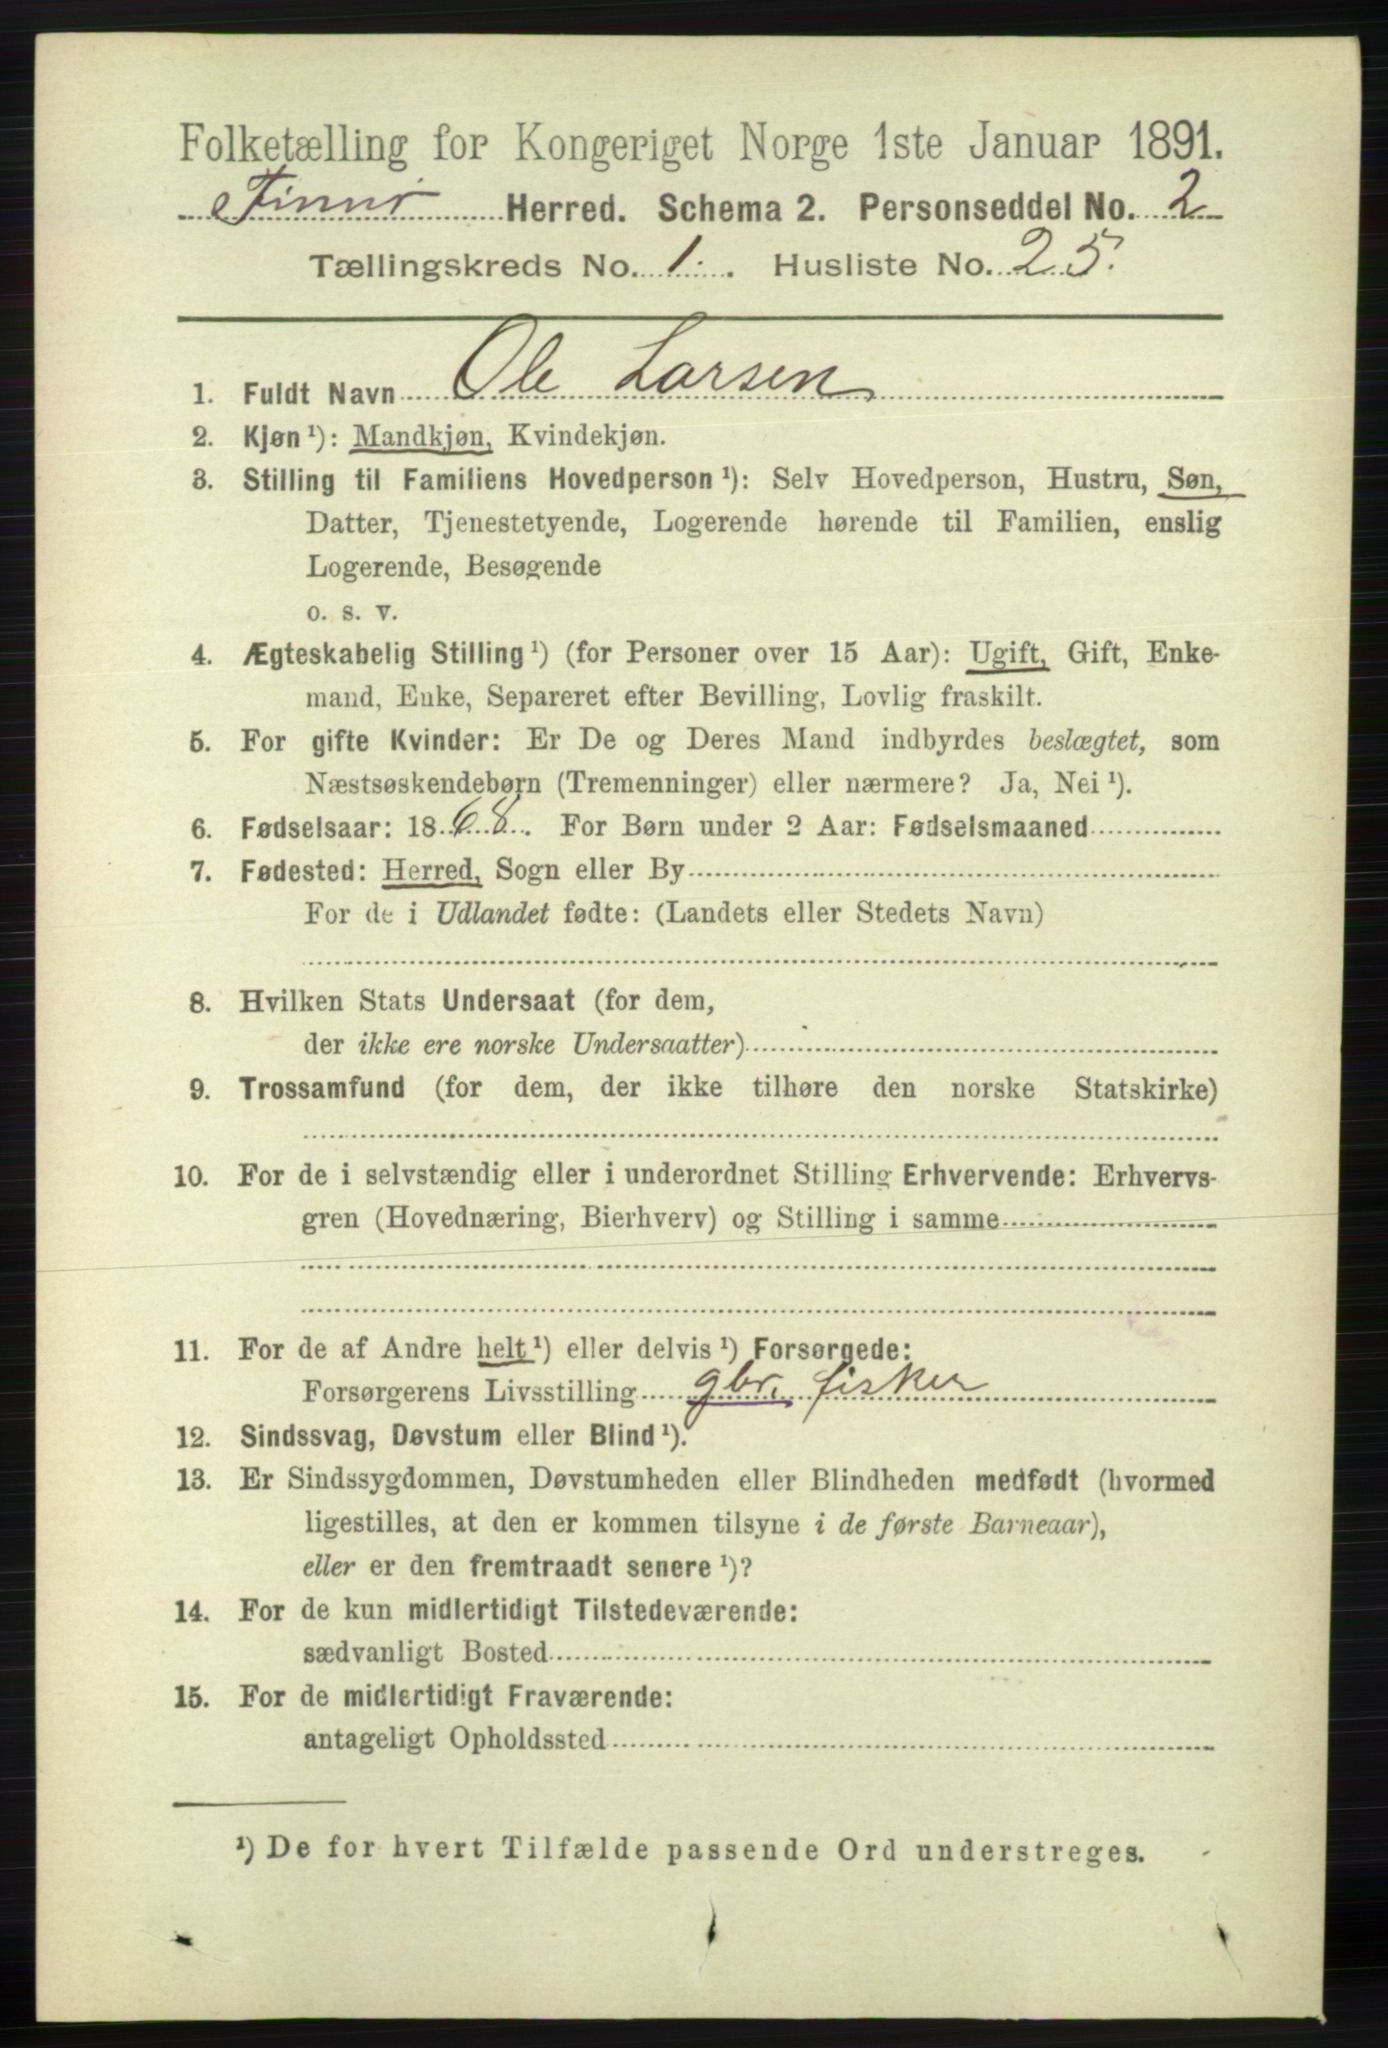 Folketælling for Kongeriget Norge 1ste Januar 1891.
Finnø Herred. Schema 2. Personseddel No. 2
Tællingskreds No. 1. Husliste No. 25.
1. Fuldt Navn Ole Larsen
2. Kjøn ¹): Mandkjøn, Kvindekjøn.
3. Stilling til Familiens Hovedperson ¹): Selv Hovedperson, Hustru, Søn,
Datter, Tjenestetyende, Logerende hørende til Familien, enslig
Logerende, Besøgende
o. s. v.
4. Ægteskabelig Stilling ¹) (for Personer over 15 Aar): Ugift, Gift, Enke-
mand, Enke, Separeret efter Bevilling, Lovlig fraskilt.
5. For gifte Kvinder: Er De og Deres Mand indbyrdes beslægtet, som
Næstsøskendebørn (Tremenninger) eller nærmere? Ja, Nei ¹).
6. Fødselsaar: 1868. For Børn under 2 Aar: Fødselsmaaned
7. Fødested: Herred, Sogn eller By
For de i Udlandet fødte: (Landets eller Stedets Navn)
8. Hvilken Stats Undersaat (for dem,
der ikke ere norske Undersaatter)
9. Trossamfund (for dem, der ikke tilhøre den norske Statskirke)
10. For de i selvstændig eller i underordnet Stilling Erhvervende: Erhvervs-
gren (Hovednæring, Bierhverv) og Stilling i samme
11. For de af Andre helt ¹) eller delvis ¹) Forsørgede:
Forsørgerens Livsstilling gbr. fisker
12. Sindssvag, Døvstum eller Blind ¹).
13. Er Sindssygdommen, Døvstumheden eller Blindheden medfødt (hvormed
ligestilles, at den er kommen tilsyne i de første Barneaar),
eller er den fremtraadt senere ¹)?
14. For de kun midlertidigt Tilstedeværende:
sædvanligt Bosted
15. For de midlertidigt Fraværende:
antageligt Opholdssted
¹) De for hvert Tilfælde passende Ord understreges.